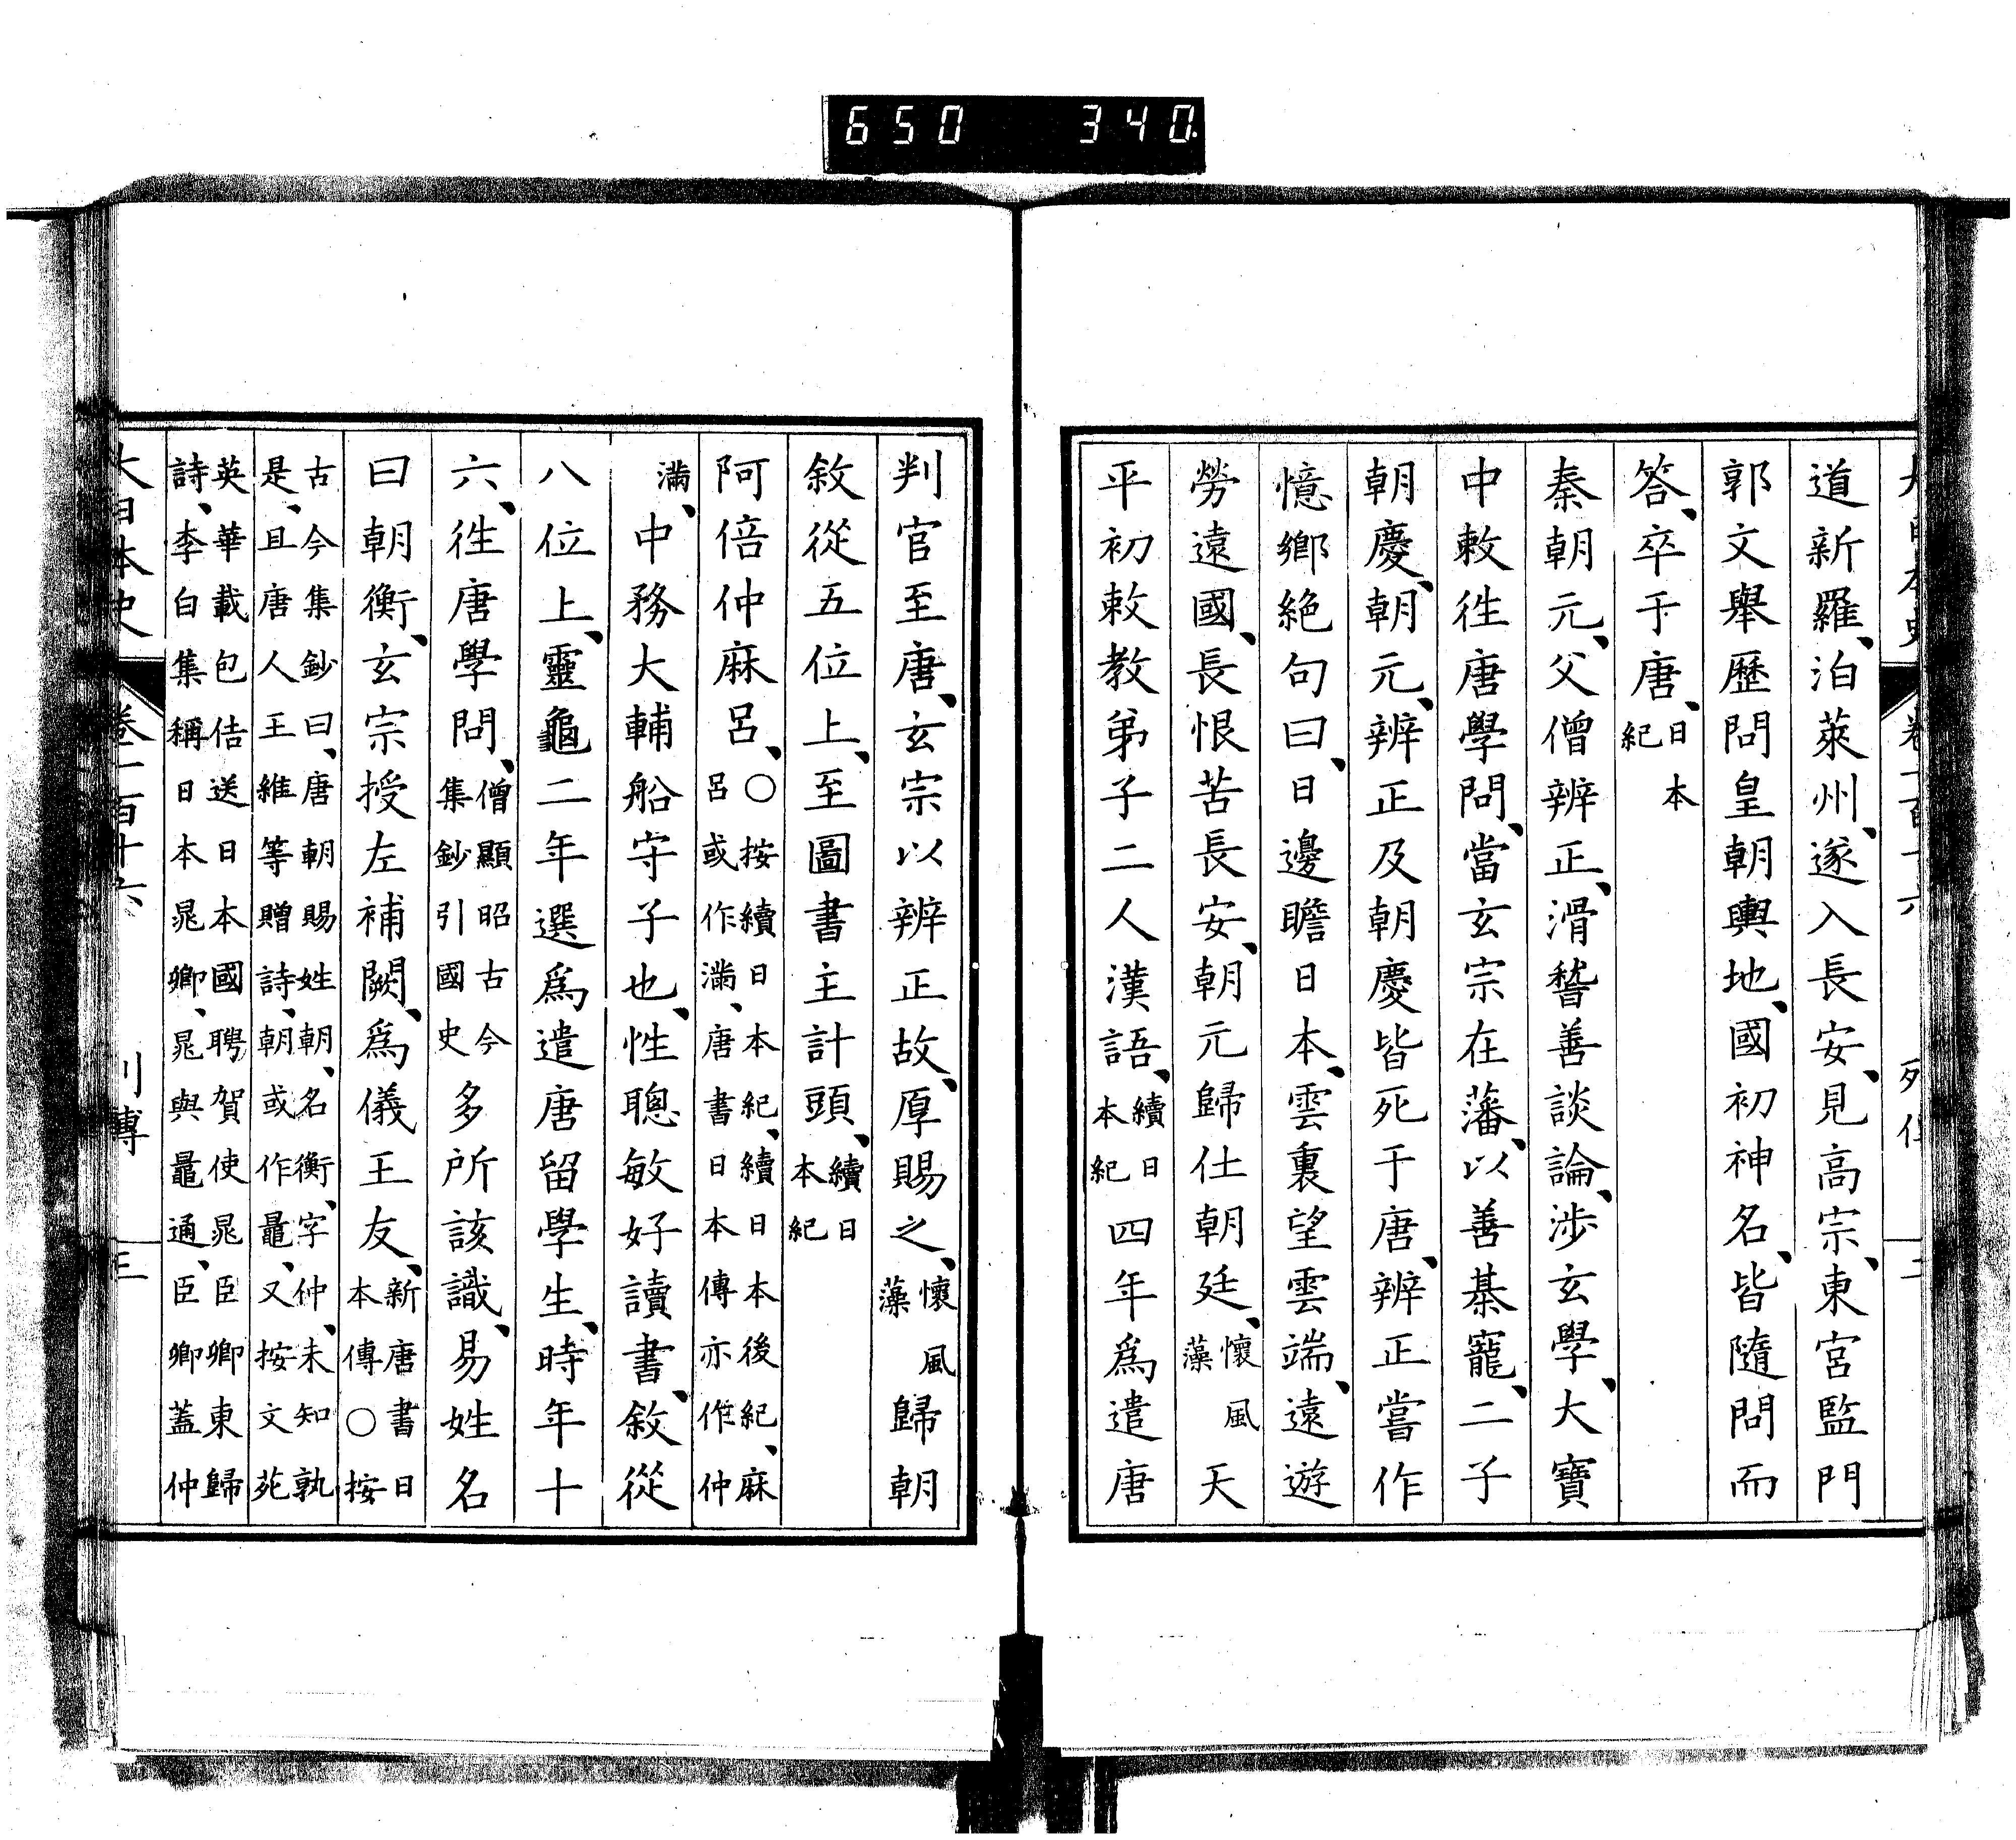 650 340.
道新羅、泊萊州、遂入長安、見高宗、東宮監門
郭文舉歷問皇朝輿地、國初神名、皆隨問而
答、卒于唐、日本紀
秦朝元、父僧辨正、滑稽善談論、涉玄學、大寶
中敕徃唐學問、當玄宗在藩、以善棊寵、二子
朝慶、朝元、辨正及朝慶皆死于唐、辨正嘗作
憶鄉絶句曰、日邊瞻日本、雲裏望雲端、遠遊
勞遠國、長恨苦長安、朝元歸仕朝廷、懷風藻天
平初敕教弟子二人漢語、續日本紀四年爲遣唐
判官至唐、玄宗以辨正故、厚賜之、懷風藻歸朝
敘從五位上、至圖書主計頭、續日本紀
阿倍仲麻呂、○按續日本紀、續日本後紀、麻呂或作滿、唐書日本傳亦作仲
滿、中務大輔船守子也、性聰敏好讀書、敘從
八位上、靈龜二年選爲遣唐留學生、時年十
六、徃唐學問、僧顯昭古今集鈔引國史多所該識、易姓名
曰朝衡、玄宗授左補闕、爲儀王友、新唐書日本傳○按
古今集鈔曰、唐朝賜姓朝、名衡、字仲、未知孰
是、且唐人王維等贈詩、朝或作鼂、又按文苑
英華載包佶送日本國聘賀使晁臣卿東歸
詩、李白集稱日本晁卿、晁與鼂通、臣卿蓋仲
大日本史 卷一百十六 列傳 三